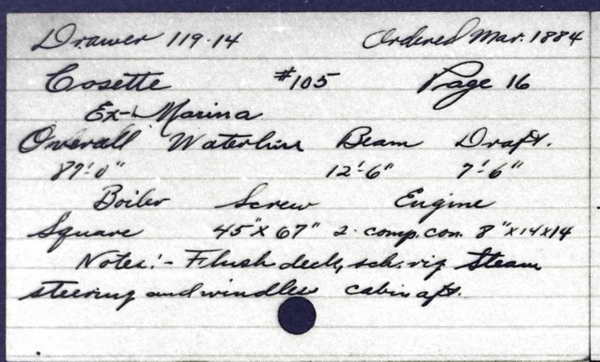 Drawer 119-14 Ordered Mar. 1884
Cosette #105 Page 16
Ex-Marina
Overall Waterline Beam Draft.
87'-0" 12'-6" 7'-6"
Boiler Screw Engine
Square 45" x 67" 2 comp. con. 8" x 14 x 14
Notes:- Flush deck, sch. rig Steam
steering and windlass cabin aft.